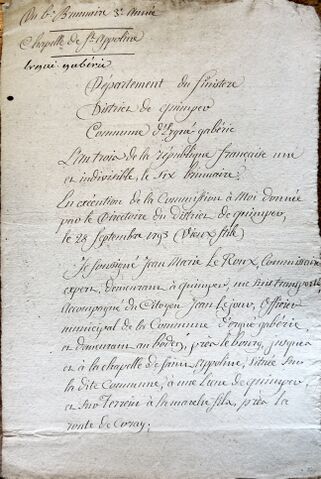 Du 6e Brumaire 3e Année
Chapelle de Ste Appoline
Ergué gabéric
Département du finistere
District de quimper
Commune d'Ergué-gabéric
L'an trois de la république française une
et indivisible, le Six brumaire.
En exécution de la Commission à Moi donnée
par le Directoire du district de quimper,
le 28 Septembre 1793 Vieux stile
Je soussigné Jean Marie Le Roux, Commissaire
expert, demeurant à quimper, me suis transporté
accompagné du Citoyen Jean Le jour, Officier
municipal de la Commune d'ergué gabéric
et demeurant au boders, près le bourg, jusques
et à la chapelle de sainte Appoline, située sur
la dite Commune, à une lieue de quimper,
et Sur Terrein à la près la
route de Coray.